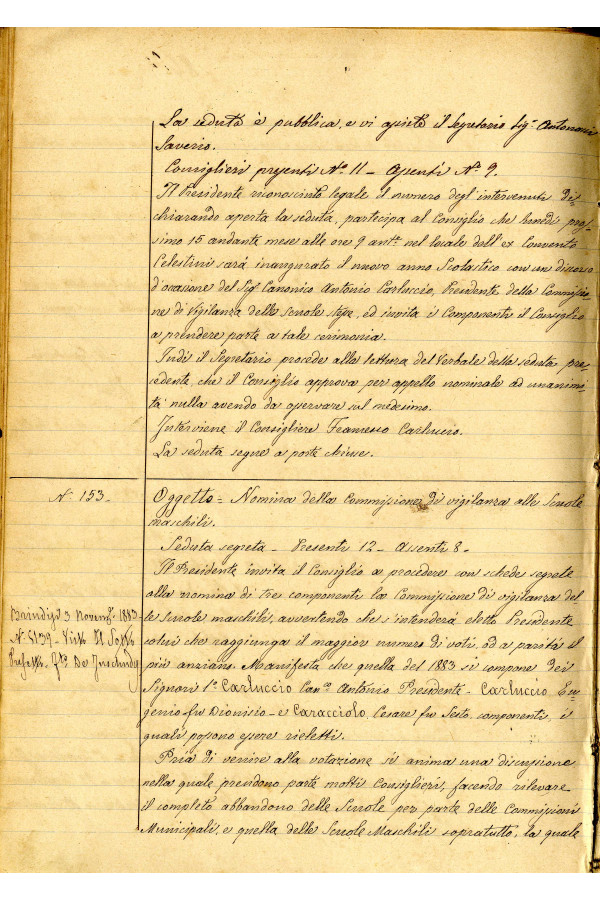 La seduta è pubblica, e vi assiste il Segretario Sig.r Antonucci
Saverio.
Consiglieri presenti N.o 11 – Assenti N.o 9.
Il Presidente riconosciuto legale il numero degl'intervenuti di-
chiarando aperta la seduta, participa al Consiglio che lunedì pros-
simo 15 andante mese alle ore 9 ant.e nel locale dell'ex Convento
Celestini sarà inaugurato il nuovo anno Scolastico con un discorso
d'occasione del Sig.r Canonico Antonio Carluccio, Presidente della Commissio-
ne di Vigilanza delle scuole stesse, ed invita i Componenti il Consiglio
a prendere parte a tale cerimonia.
Indi il Segretario procede alla lettura del Verbale della seduta pre-
cedente, che il Consiglio approva per appello nominale ad unanimi-
tà nulla avendo da osservare sul medesimo.
Interviene il Consigliere Francesco Carluccio.
La seduta segue a porte chiuse.
N. 153.
Oggetto = Nomina della Commissione di vigilanza alle Scuole
maschili.
Seduta segreta – Presenti 12 – Assenti 8.
Il Presidente invita il Consiglio a procedere con schede segrete
alla nomina di tre componenti la Commissione di vigilanza del-
le scuole maschili, avvertendo che s'intenderà eletto Presidente
colui che raggiunga il maggior numero di voti, od a parità il
più anziano. Manifesta che quella del 1883 si compone dei
Signori 1.o Carluccio Can.co Antonio Presidente – Carluccio Eu-
genio fu Dionisio – e Caracciolo Cesare fu Sesto, componenti, i
quali possono essere rieletti.
Brindisi 3 Novem. 1883
N. 8139 – Visto Il Sotto
Prefetto. F.to De
Pria di venire alla votazione si anima una discussione
nella quale prendono parte molti Consiglieri, facendo rilevare
il completo abbandono delle Scuole per parte delle Commissioni
Municipali, e quella delle Scuole Maschili sopratutto, la quale